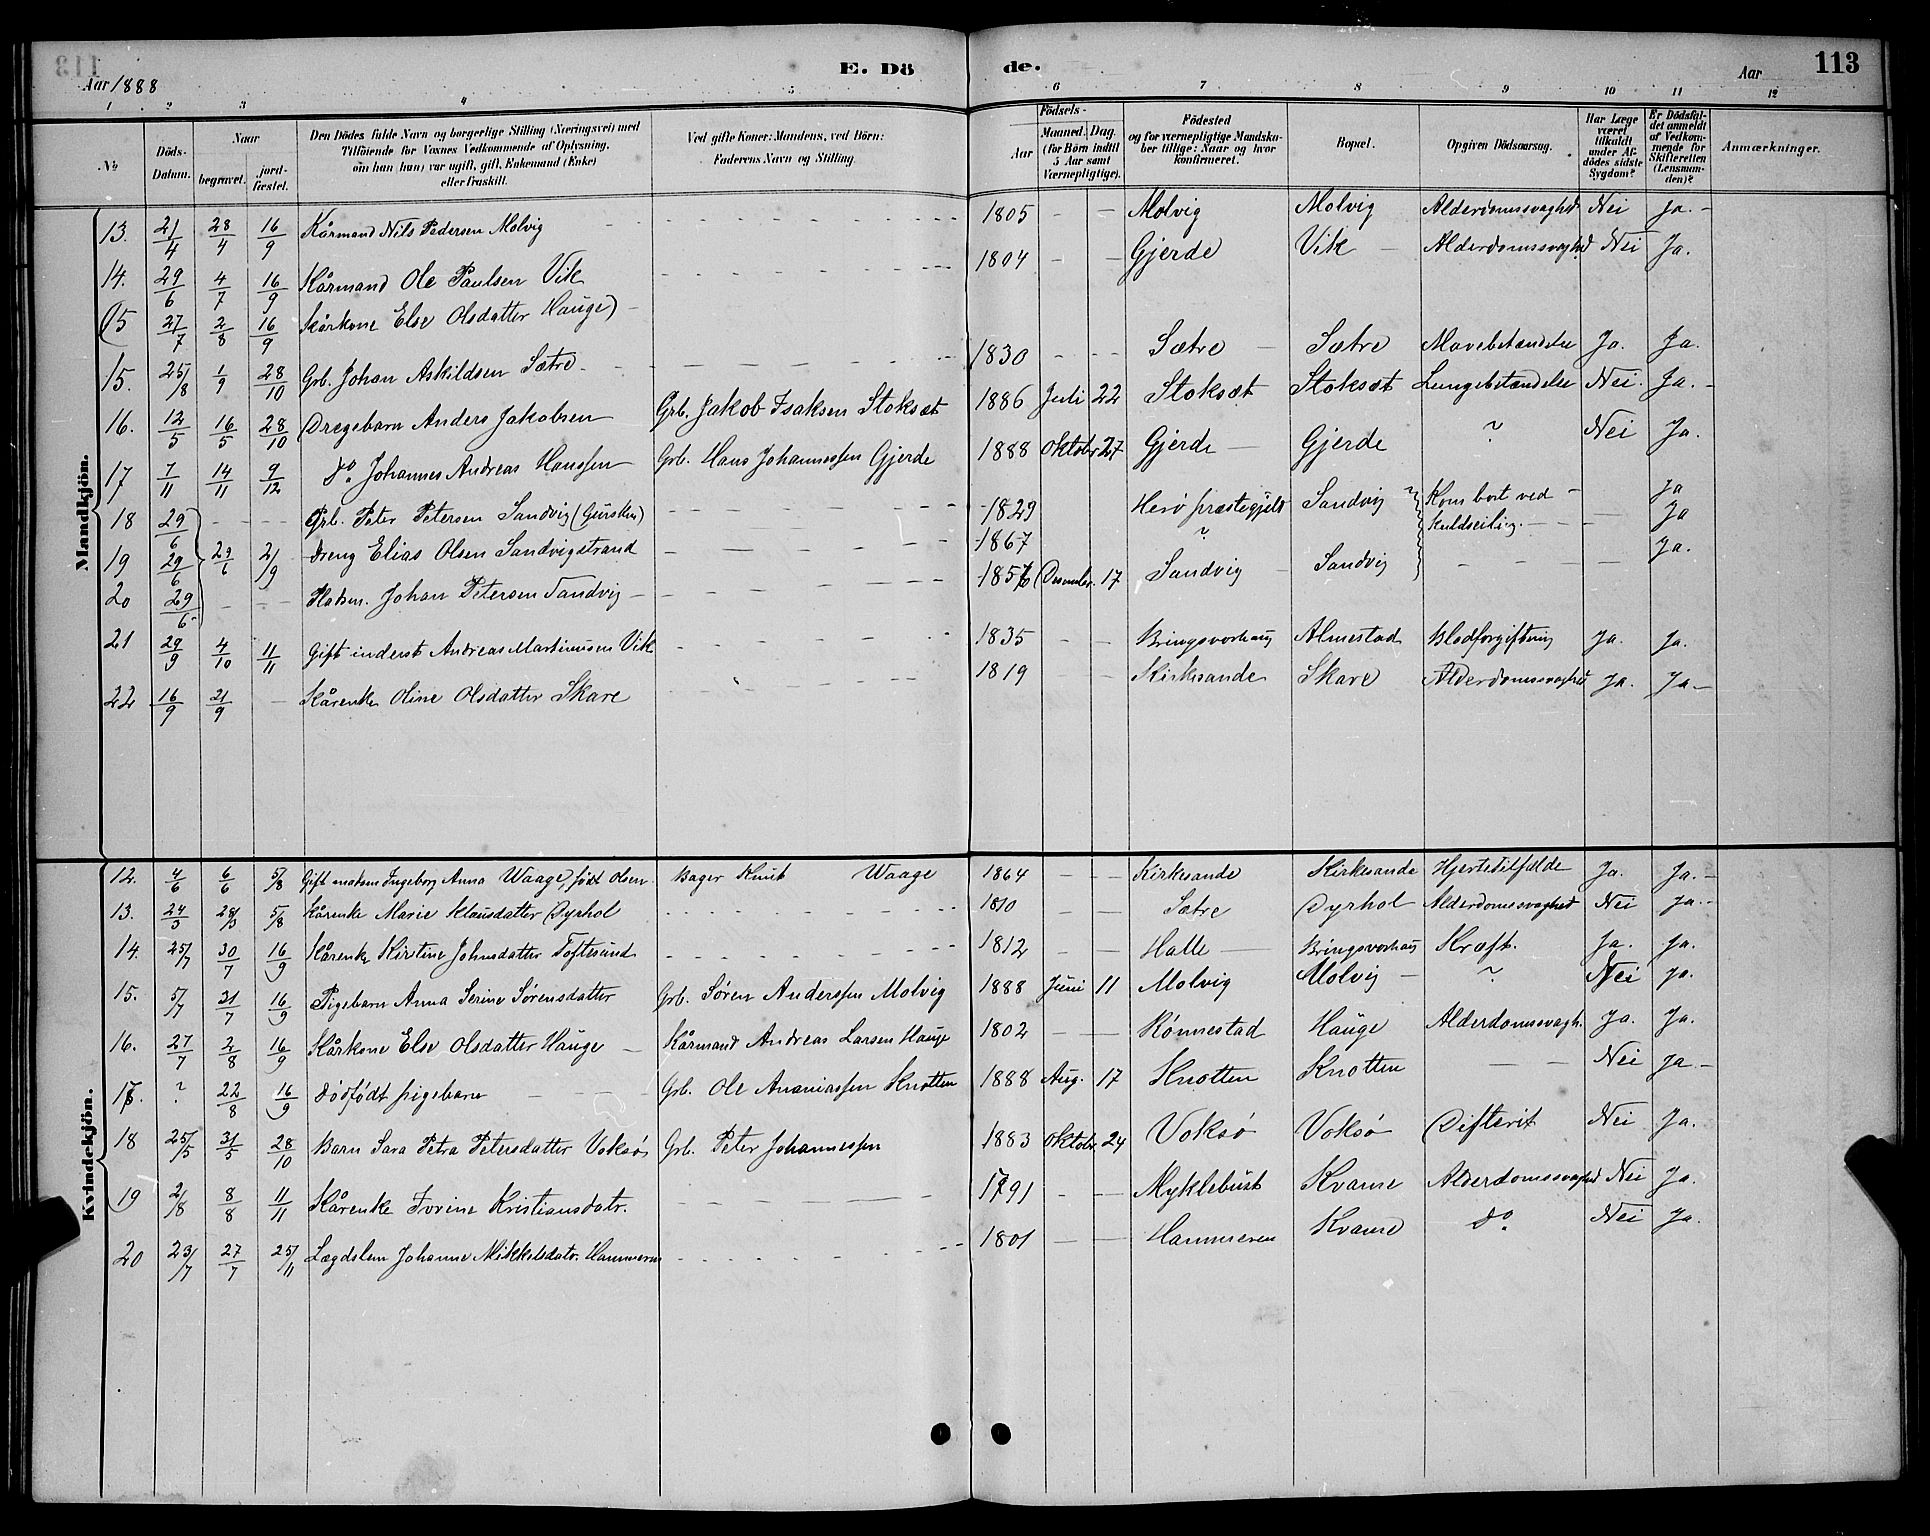 113
Aar 1888
E. Dö
de.
Aar
113
1 2 3 4 5 6 7 8 9 10 11 12
№
Döds-Datum.
Naar
begravet.
jord-fæstet.
Den Dödes fulde Navn og borgerlige Stilling (Næringsvei) med Tilföiende for Voxnes Vedkommende af Oplysning, om han (hun) var ugift, gift, Enkemand (Enke) eller fraskilt.
Ved gifte Koner: Mandens, ved Börn: Faderens Navn og Stilling.
Födsels-
Aar
Maaned. Dag.
(for Börn indtil 5 Aar samt Værnepligtige).
Födested og for værnepligtige Mandskaber tillige: Naar og hvor konfirmeret.
Bopæl.
Opgiven Dödsaarsag.
Har Læge været tilkaldt under Afdödes sidste Sygdom?
Er Dödsfaldet anmeldt af Vedkommende for Skifteretten (Lensmanden)?
Anmærkninger.
Mandkjön.
13. 21/4 28/4 16/9 Kårmand Nils Pedersen Molvig 1805 Molvig Molvig Alderdomssvaghed Nei Ja.
14. 29/6 4/7 16/9 Kårmand Ole Paulsen Vik 1804 Gjerde Vik Alderdomssvaghed Nei Ja.
(15 27/7 2/8 16/9 Kårkone Else Olsdatter Hauge)
15. 25/8 1/9 28/10 Grb. Johan Askildsen Sætre 1830 Sætre Sætre Mavebetændelse Ja. Ja.
16. 12/5 16/5 28/10 Dregebarn Anders Jakobsen Grb. Jakob Isaksen Stoksæt 1886 Juli 22 Stoksæt Stoksæt Lungebetændelse Nei Ja.
17 7/11 14/11 9/12 do. Johannes Andreas Hanssen Grb. Hans Johannessen Gjerde 1888 Oktober 27 Gjerde Gjerde ? Nei Ja.
18 29/6 Grb. Peter Petersen Sandvig (Gursken) 1829 Herø præstegjeld Sandvig Kom bort ved Ja
19 29/6 29/6 2/9 Dreng Elias Olsen Sandvigstrand 1867 ? kuldseiling. Ja
20 29/6 Pladsm. Johan Petersen Sandvig 1856 December 17 Sandvig Sandvig Ja.
21 29/9 4/10 11/11 Gift inderst Andreas Martinusen Vik 1835 Bringsvorhaug Almestad Blodforgiftning Ja. Ja.
22 16/9 21/9 Kårenke Oline Olsdatter Skare 1819 Kirkesande Skare Alderdomssvaghed Ja. Ja
Kvindekjön.
12. 4/6 6/6 5/8 Gift madam Ingeborg Anna Waage, født Olsen Bager Knut Waage 1864 Kirkesande Kirkesande Hjertetilfælde Ja. Ja.
13. 24/3 28/3 5/8 Kårenke Marie Klausdatter Dyrhol 1810 Sætre Dyrhol Alderdomssvaghed Nei Ja.
14. 25/7 30/7 16/9 Kårenke Kirstine Johnsdatter Toftesund 1812 Halle Bringsvorhaug Kræft. Ja. Ja.
15. 5/7 31/7 16/9 Pigebarn Anna Serine Sørensdatter Grb. Søren Anderssen Molvig 1888 Juni 11 Molvig Molvig ? Nei Ja.
16. 27/7 2/8 16/9 Kårkone Else Olsdatter Hauge Kårmand Andreas Larsen Hauge 1802 Rønnestad Hauge Alderdomssvagh. Ja. Ja.
17. ? 22/8 16/9 Dødfødt pigebarn Grb. Ole Ananiassen Knotten 1888 Aug. 17 Knotten Knotten Nei Ja
18 25/5 31/5 28/10 Barn Sara Petra Petersdatter Voksø Grb. Peter Johannessen 1883 Oktober 24 Voksø Voksø Difterit Nei Ja.
19 2/8 8/8 11/11 Kårenke Ivrine Kristiansdatr. 1791 Myklebust Kvame Alderdomssvaghed Nei Ja.
20 23/7 27/7 25/11 Lægdslem Johanne Mikkelsdatr. Hammeren 1801 Hammeren Kvame do. Nei Ja.